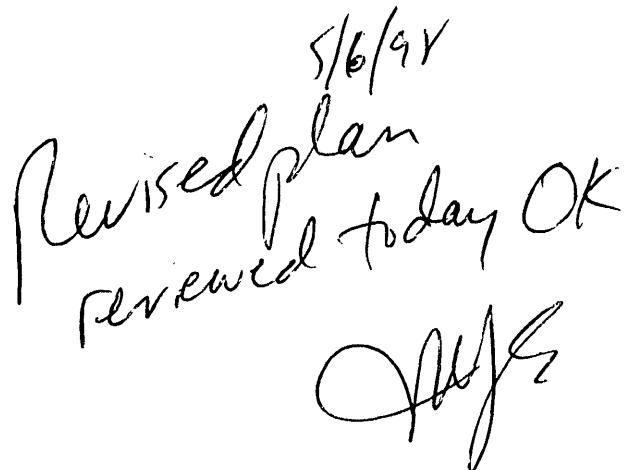 5/6/98
Revised plan
reviewed today OK